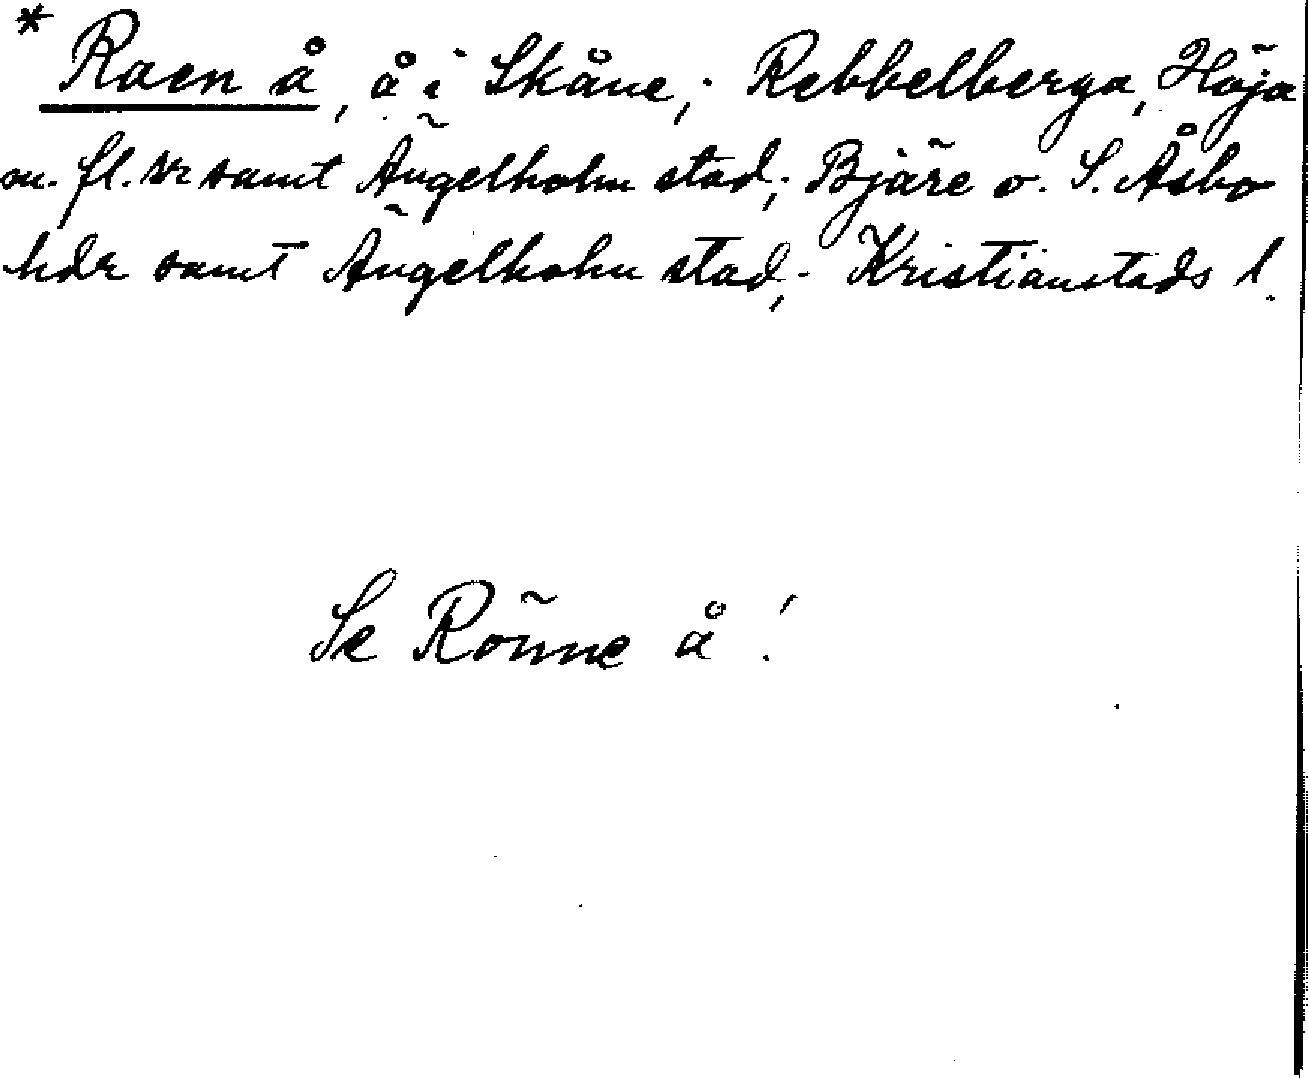 * Raen å, å i Skåne; Rebbelberga, Höja
m. fl. snr samt Ängelholm stad; Bjäre o. S. Åsbo
hdr samt Ängelholm stad; Kristianstads l.
Se Rönne å!